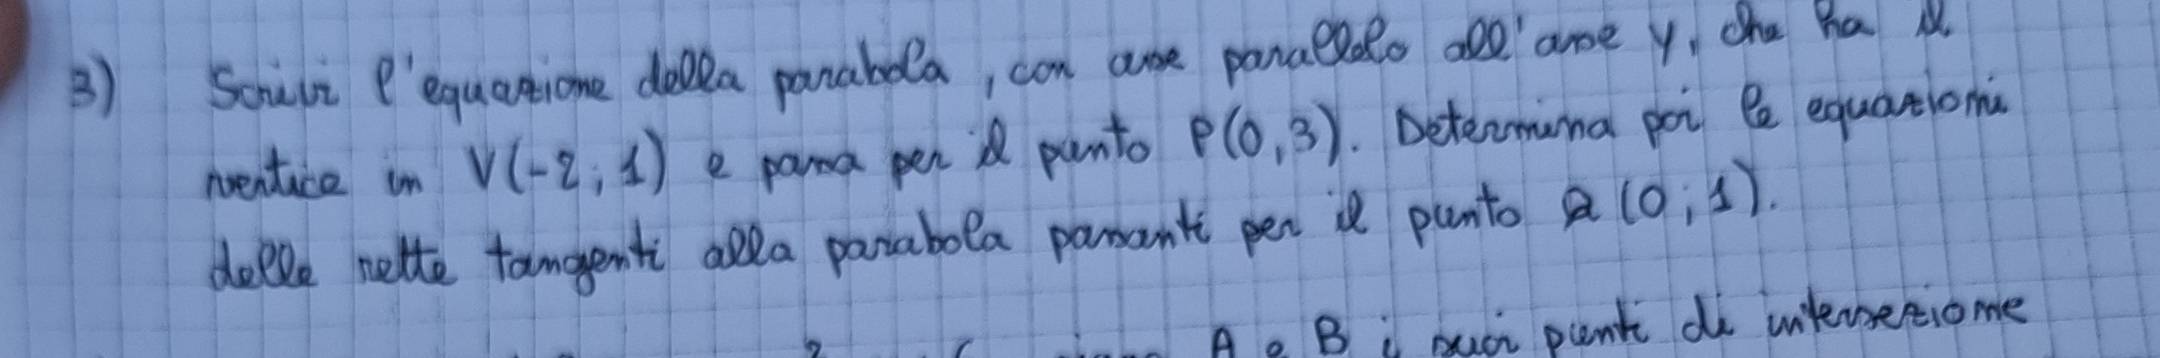 3) Scrivi l'equazione della parabola, con asse parallelo all'asse y, che ha il
vertice in V(-2; 1) e passa per il punto P(0, 3). Determina poi le equazioni
delle rette tangenti alla parabola passanti per il punto Q (0; 1).
A e B i suoi punti di intersezione